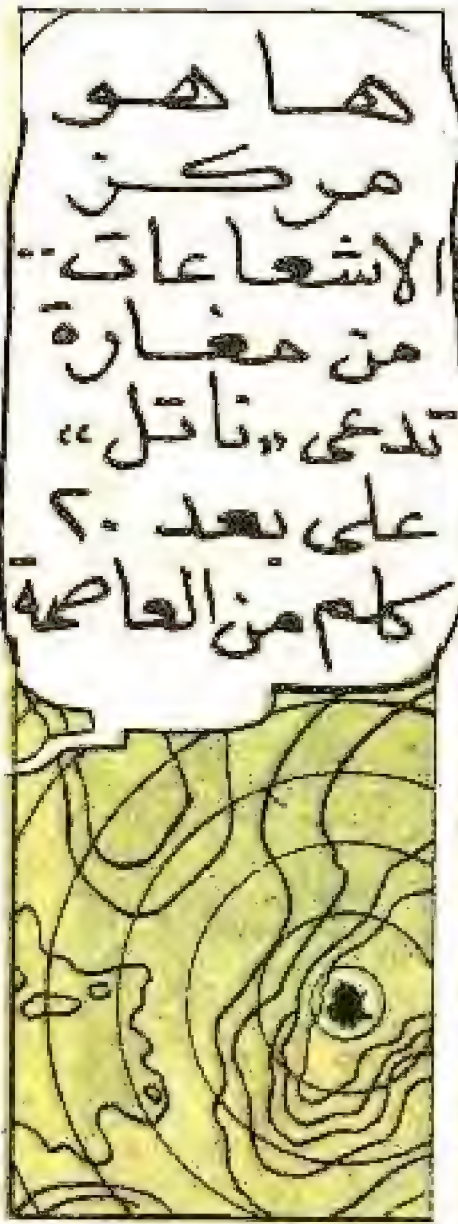 ها هو
مركز
الاشعاعات ..
من مغارة
تدعى «ناتل»
على بعد ٢٠
كلم من العاصمة